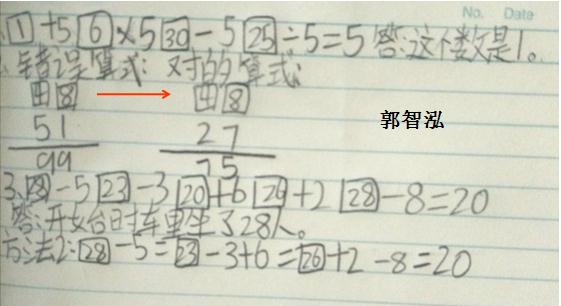 No. Date
1 +5 6 ×5 30 -5 25 ÷5=5 答:这个数是1。
错误算式: 对的算式:
田8 田8
郭智泓
51 27
99 75
3. 28 -5 23 -3 20 +6 26 +2 28 -8=20
答:开始台时车里坐了28人。
方法2: 28 -5= 23 -3+6= 26 +2-8=20